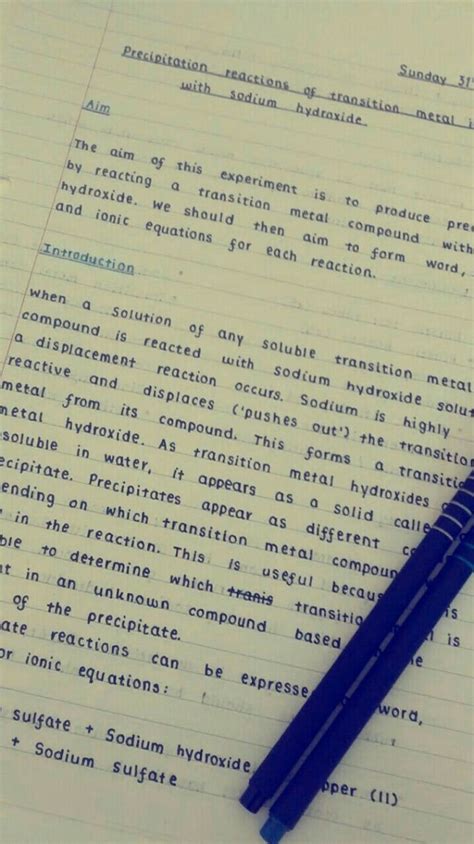 Sunday 31
Precipitation reactions of transition metal i
with sodium hydroxide
Aim
The aim of this experiment is to produce pre
by reacting a transition metal compound with
hydroxide. We should then aim to form word,
and ionic equations for each reaction.
Introduction
When a solution of any soluble transition metal
compound is reacted with sodium hydroxide solut
a displacement reaction occurs. Sodium is highly
reactive and displaces ('pushes out') the transition
metal from its compound. This forms a transitio
metal hydroxide. As transition metal hydroxides
soluble in water, it appears as a solid calle
ecipitate. Precipitates appear as different co
ending on which transition metal compoun
in the reaction. This is useful becau is
ble to determine which tranis transitio
t in an unknown compound based is
of the precipitate.
ate reactions can be expresse word,
or ionic equations:
sulfate + Sodium hydroxide pper (II)
+ Sodium sulfate